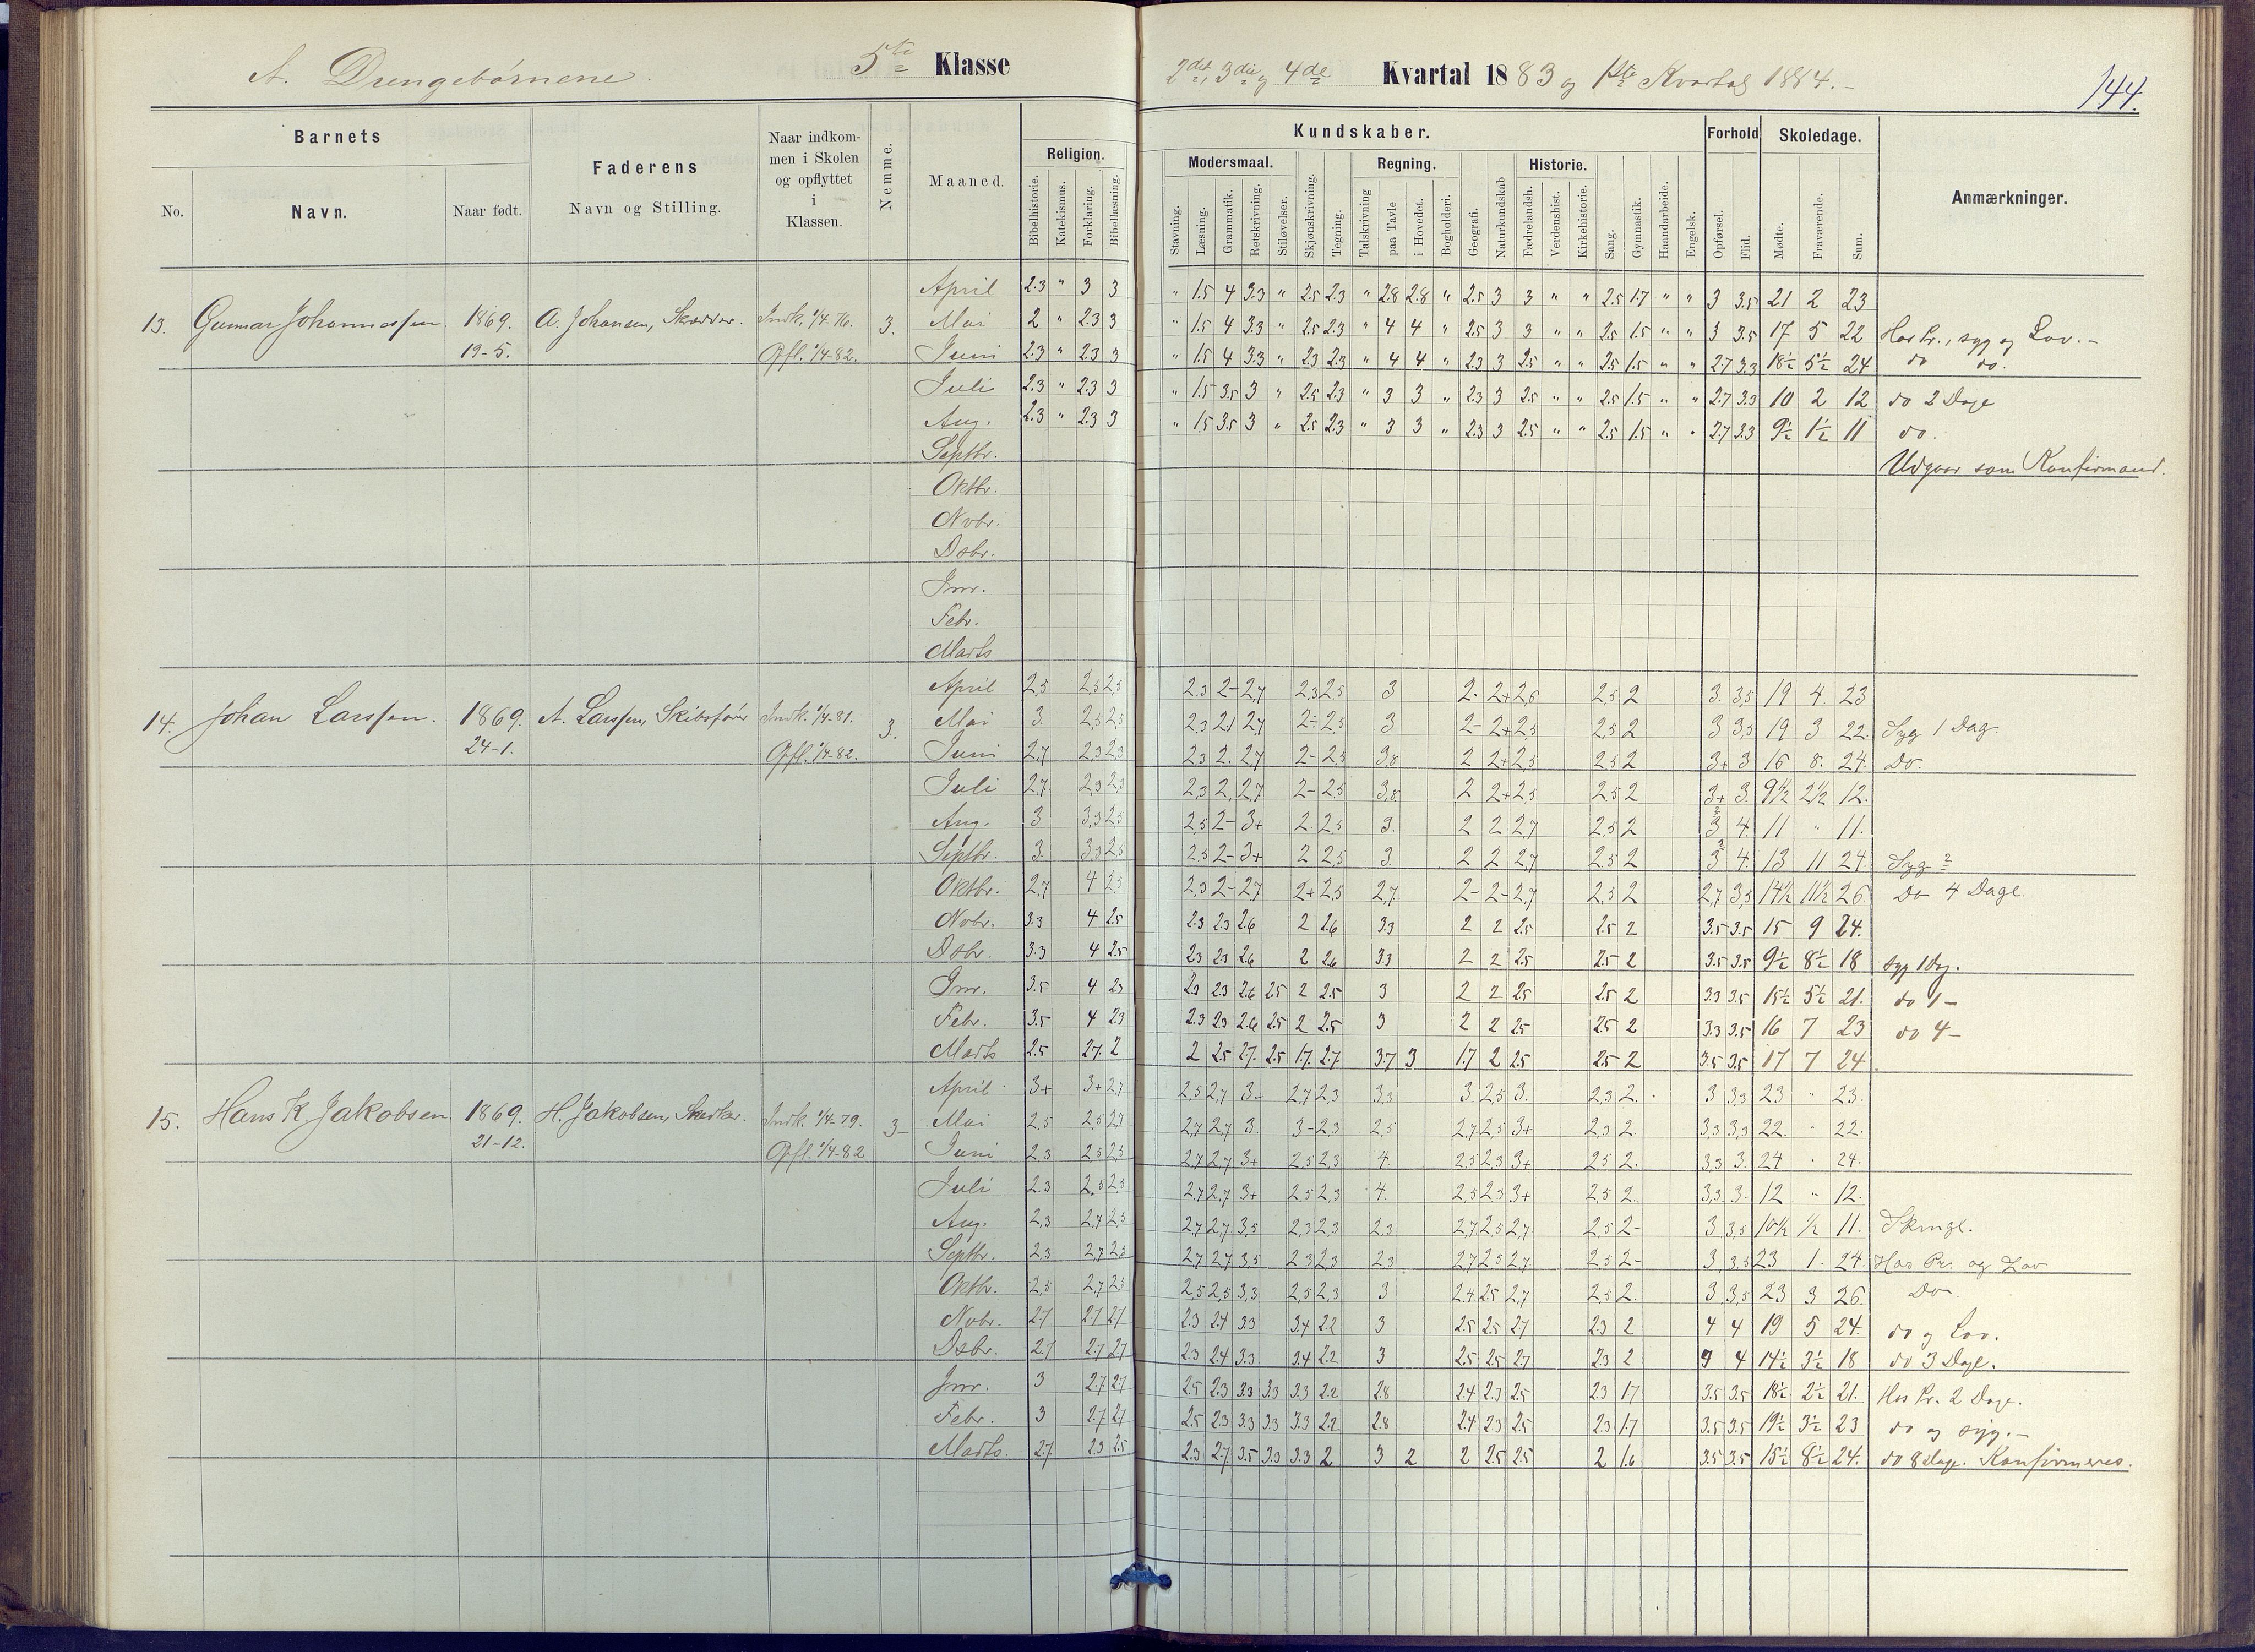 A. Drengebørnene. 5te Klasse
2det, 3die og 4de Kvartal 1883 og 1ste Kvartal 1884.-
144.
Barnets
No.
Navn.
Naar født.
Faderens
Navn og Stilling.
Naar indkom-
men i Skolen
og opflyttet
i
Klassen.
Nemme.
Maaned.
Kundskaber.
Religion.
Bibelhistorie. Katekismus. Forklaring. Bibellæsning.
Modersmaal.
Stavning. Læsning. Grammatik. Retskrivning. Stiløvelser.
Skjønskrivning. Tegning.
Regning.
Talskrivning paa Tavle i Hovedet.
Bogholderi. Geografi. Naturkundskab
Historie.
Fædrelandsh. Verdenshist. Kirkehistorie.
Sang. Gymnastik. Haandarbeide. Engelsk.
Forhold
Opførsel. Flid.
Skoledage.
Mødte. Fraværende. Sum.
Anmærkninger.
April 2.3 " 3 3 " 1.5 4 3.3 " 2.5 2.3 " 2.8 2.8 " 2.5 3 3 " " 2.5 1.7 " " 3 3.5 21 2 23
13. Gunnar Johannessen. 1869. A. Johansen, Skrædder. Indk. 1/4-76. 3. Mai 2 " 2.3 3 " 1.5 4 3.3 " 2.5 2.3 " 4 4 " 2.5 3 3 " " 2.5 1.5 " " 3 3.5 17 5 22 Hos Pr., syg og Lov.-
19-5. Opfl. 1/4-82. Juni 2.3 " 2.3 3 " 1.5 4 3.3 " 2.3 2.3 " 4 4 " 2.3 3 2.5 " " 2.5 1.5 " " 2.7 3.3 18½ 5½ 24 do do.
Juli 2.3 " 2.3 3 " 1.5 3.5 3 " 2.5 2.3 " 3 3 " 2.3 3 2.5 " " 2.5 1.5 " " 2.7 3.3 10 2 12 do 2 Dage
Aug. 2.3 " 2.3 3 " 1.5 3.5 3 " 2.5 2.3 " 3 3 " 2.3 3 2.5 " " 2.5 1.5 " " 2.7 3.3 9½ 1½ 11 do.
Septbr. Udgaar som Konfirmand.
Oktbr.
Nvbr.
Dsbr.
Jnr.
Febr.
Marts
April 2,5 2,5 2,5 2.3 2- 2,7 2,3 2,5 3 2. 2+ 2,6 2,5 2 3. 3,5 19 4. 23
14. Johan Larssen. 1869. A. Larssen, Skibsfører Indk. 1/4-81. 3. Mai 3. 2,5 2,5 2,3 2.1 2,7 2÷ 2,5 3 2- 2+ 2,5 2,5 2 3 3,5 19 3 22. Syg 1 Dag.
24-1. Opfl. 1/4-82. Juni 2,7 2,3 2,3 2.3 2. 2,7 2- 2,5 3,8 2 2+ 2,5 2,5 2 3+ 3 16 8. 24. Do.
Juli 2,7. 2,3 2,3 2,3 2. 2,7 2- 2,5 3,8 2 2+ 2,5 2,5 2 3+ 3. 9½ 2½ 12.
Aug. 3 3,3 2,5 2,5 2- 3+ 2 2,5 3. 2 2 2,7 2,5 2 3 4. 11 " 11.
Septbr. 3. 3,3 2,5 2.5 2- 3+ 2 2,5 3. 2 2 2,7 2,5 2 3 4. 13 11 24. Syg ?
Oktbr. 2,7 4 2,5 2,3 2- 2,7 2+ 2,5 2,7 2- 2- 2,7 2,5 2 2,7 3,5 14½ 11½ 26. Do 4 Dage.
Nvbr. 3.3 4 2.5 2.3 2.3 2.6 2 2.6 3.3 2 2 2.5 2.5 2 3.5 3.5 15 9 24.
Dsbr. 3.3 4 2.5 2.3 2.3 2.6 2 2.6 3.3 2 2 2.5 2.5 2 3.5 3.5 9½ 8½ 18 syg 1 Dg.
Jnr. 3.5 4 2.3 2.3 2.3 2.6 2.5 2 2.5 3 2 2 2.5 2.5 2 3.3 3.5 15½ 5½ 21. do 1 -
Febr. 3.5 4 2.3 2.3 2.3 2.6 2.5 2 2.5 3 2 2 2.5 2.5 2 3.3 3.5 16 7 23 do 4 -
Marts 2.5 2.7. 2 2 2.5 2.7. 2.5 1.7. 2.7 3.7 3 1.7 2 2.5 2.5 2 3.5 3.5 17 7 24
April 3+ 3+ 2,7 2.5 2,7 3- 2,7 2,3 3,3 3. 2,5 3. 2,3 2. 3 3,3 23 " 23.
15. Hans K. Jakobsen. 1869. H. Jakobsen, Snedker. Indk. 1/4-79. 3- Mai 2,5 2,5 2,7 2,7 2,7 3 3- 2,3 2,5 2.7 2,5 3+ 2,3 2. 3,3 3,3 22. " 22.
21-12. Opfl. 1/4-82 Juni 2,3 2,5 2,5 2,7 2,7 3+ 2,5 2,3 4. 2,5 2,3 3+ 2,5 2. 3,3 3. 24 " 24.
Juli 2.3 2,5 2,5 2,7 2,7 3+ 2,5 2,3 4. 2,5 2,3 3+ 2,5 2. 3,3. 3. 12 " 12.
Aug. 2,3 2,7 2,5 2,7 2,7 3,5 2,3 2,3 2.3 2,7. 2,5 2,7 2,5 2- 3 3,5 10½ ½ 11.
Septbr. 2,3 2,7 2,5 2,7 2,7 3,5 2,3 2,3 2,3 2,7 2,5 2,7. 2,5 2- 3 3,5 23 1. 24. Hos Pr. og Lov
Oktbr. 2,5 2,7 2,5 2,5 2,5 3,3 2,5 2,3 3 2.4 2,5 2,7 2,5 2 3 3,5 23 3 26. Do.
Nvbr. 2.7 2.7 2.7 2.3 2.4 3.3 3.4 2.2 3 2.5 2.5 2.7 2.3 2 4 4 19 5 24. do og Lov.
Dsbr. 2.7 2.7 2.7 2.3 2.4 3.3 3.4 2.2 3 2.5 2.5 2.7 2.3 2 4 4 14½ 3½ 18 do 3 Dage.
Jnr. 3 2.7. 2.7 2.5 2.3 3.3 3.3 3.3 2.2 2.8 2.4 2.3 2.5 2.3 1.7 3.5 3.5 18½ 2½ 21. Hos Pr. 2 Dage.
Febr. 3 2.7 2.7 2.5 2.3 3.3 3.3 3.3 2.2 2.8 2.4 2.3 2.5 2.3 1.7 3.5 3.5 19½ 3½ 23 do og syg.-
Marts. 2.7 2.3 2.5 2.3 2.7. 3.5 3.3 3.3 2 3 2 2 2.5 2.5 2 1.6 3.5 3.5 15½ 8½ 24. do 8 Dage. Konfirmeres.